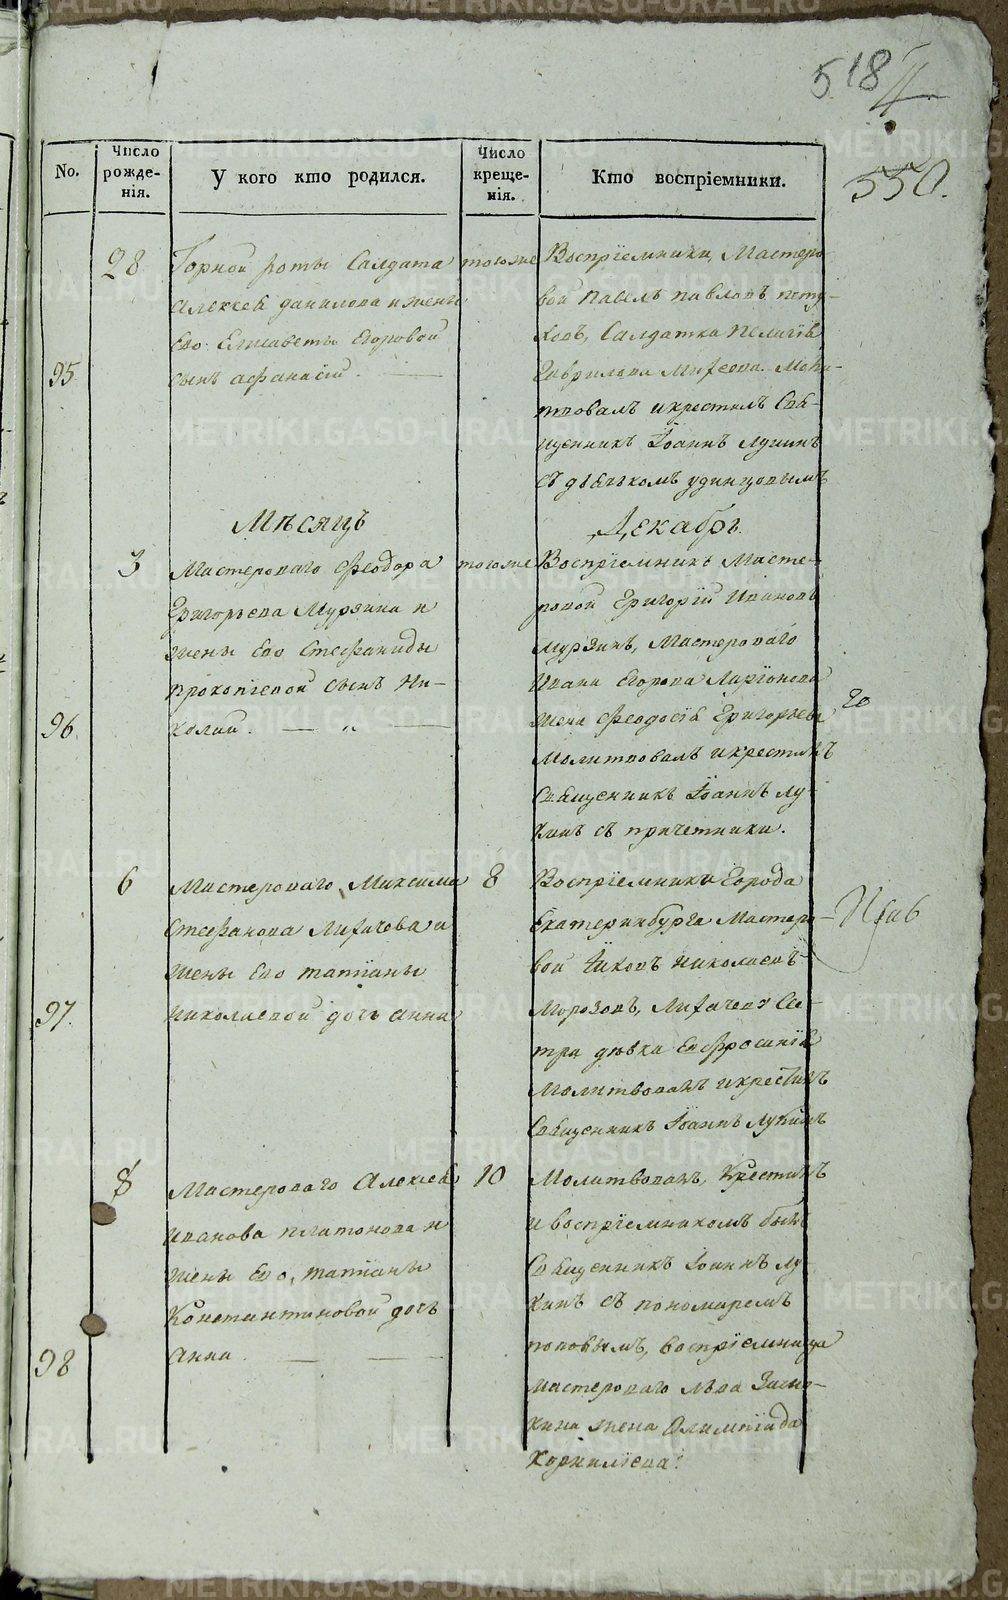 518
550.
No.
Число рожденія.
У кого кто родился.
Число крещенія.
Кто воспріемники.
95
28
Горной роты Салдата
Алексея данилова и жены
Его Елисаветы Егоровой
сынъ афанасій.
тогоже
Воспріемники, Мастеро-
вой павелъ павловъ пету-
ховъ, Салдатка
гаврилова Молит-
вовалъ икрестилъ Свя-
щенникъ Іоаннъ Лукинъ
съ дьячкомъ удинцовымъ
Мѣсяцъ Декабрь.
96.
3
Мастероваго Феодора
Григорьева Мурзина и
жены Его Стефаниды
прокопіевой сынъ Ни-
колай. — „ —
тогоже
Воспріемникъ Масте-
ровой Григорій Ивановъ
Мурзинъ, Мастероваго
Ивана Егорова Ларіонова
жена Феодосія Григорьева
Молитвовалъ икрестилъ
Священникъ Іоаннъ Лу-
кинъ съ причетники.
20
97.
6
Мастероваго Максима
Стефанова Лихачова и
жены Его татіаны
николаевой дочь анна
8
Воспріемники Города
Екатеринбурга Мастеро-
вой Яковъ николаевъ
Морозовъ, Лихачева Се-
тра дѣвка Евфросинія
Молитвовалъ икрестилъ
Священникъ Іоаннъ Лукинъ
98
8
Мастероваго Алексея
иванова платонова и
жены Его, татіаны
Константиновой дочь
анна. — —
10
Молитвовалъ, Крестилъ
и воспріемникомъ былъ
Священникъ Іоаннъ Лу-
кинъ съ пономаремъ
поповымъ, воспріемница
мастероваго льва
жена Олимпіада
Корнилієва.
METRIKI.GASO-URAL.RU